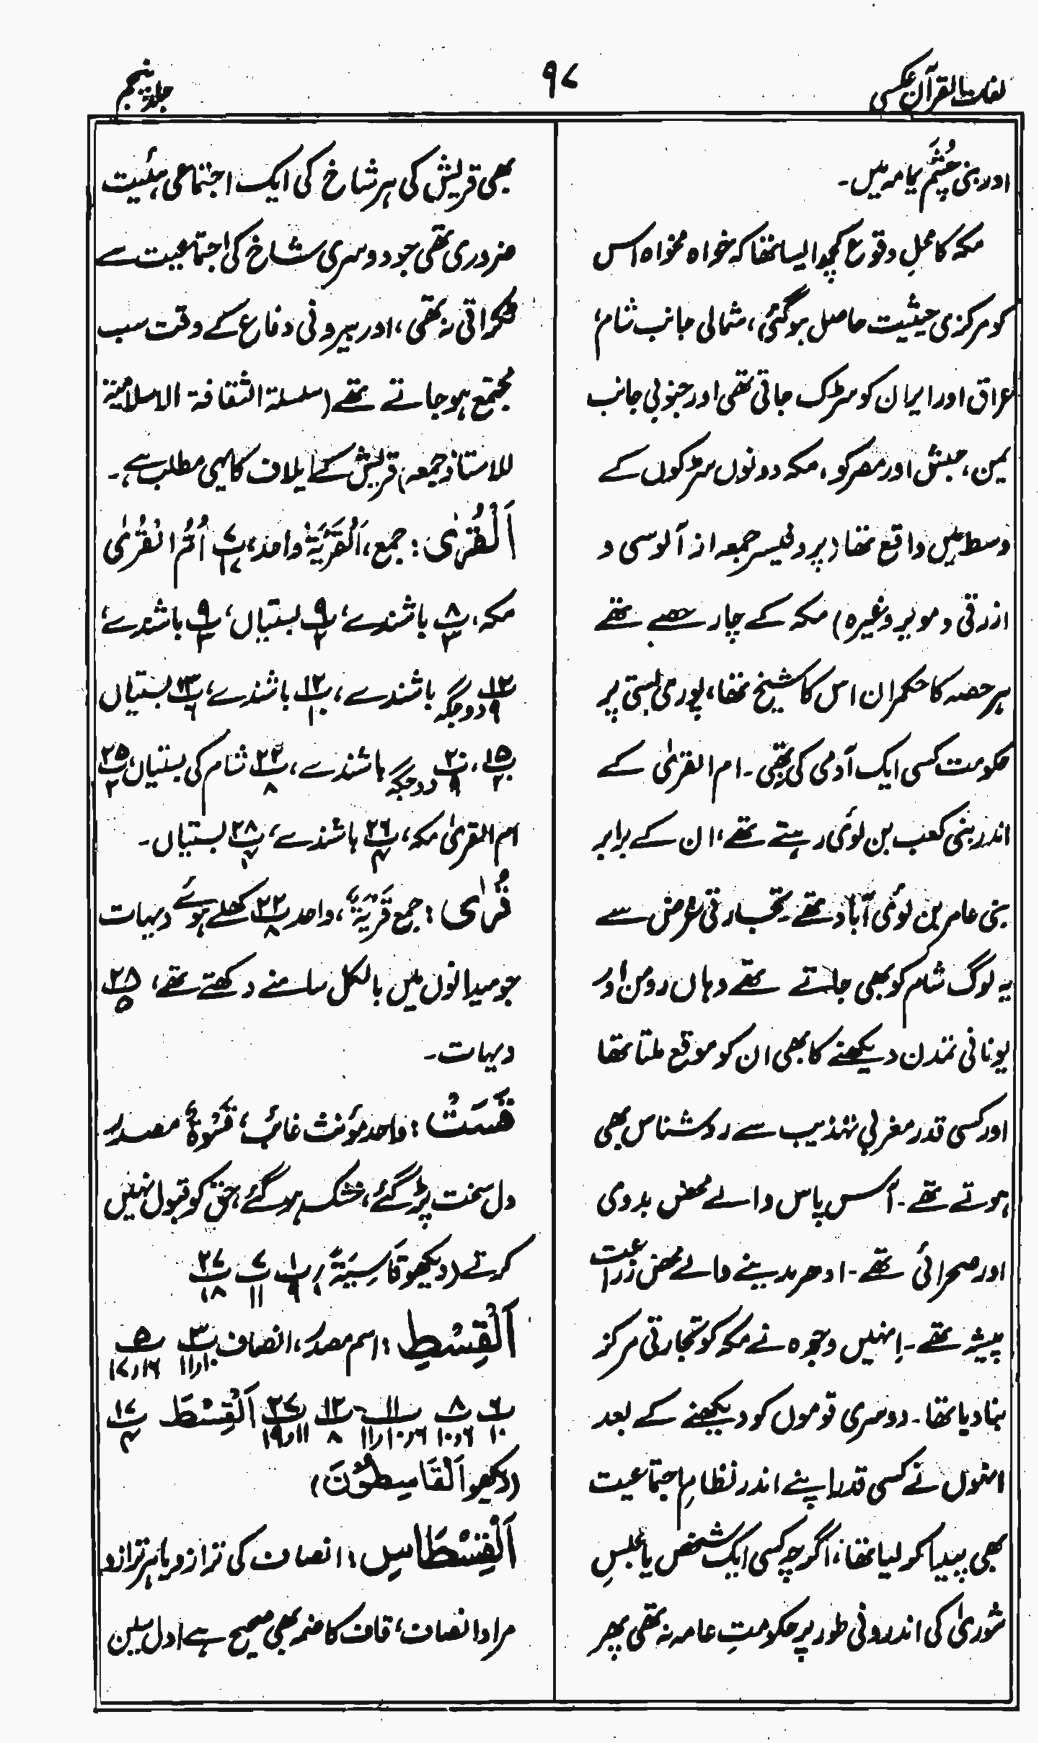 لغات القرآن عکسی
۹۷
جلد پنجم
اور بنی چشم یمامہ میں۔
مکہ کا محلِ وقوع کچھ ایسا تھا کہ خواہ مخواہ اس
کو مرکزی حیثیت حاصل ہوگئی، شمالی جانب شام،
عراق اور ایران کو سڑک جاتی تھی اور جنوبی جانب
یمن، حبش اور مصر کو، مکہ دونوں سڑکوں کے
وسط میں واقع تھا (پروفیسر جمعہ از آلوسی و
ازرقی و موبر وغیرہ) مکہ کے چار حصے تھے
ہر حصہ کا حکمران اس کا شیخ تھا، پوری بستی پر
حکومت کسی ایک آدمی کی نہ تھی۔ ام القریٰ کے
اندر بنی کعب بن لوئی رہتے تھے، ان کے برابر
بنی عامر بن لوئی آباد تھے۔ تجارتی غرض سے
یہ لوگ شام کو بھی جاتے تھے وہاں رومن اور
یونانی تمدن دیکھنے کا بھی ان کو موقع ملتا تھا
اور کسی قدر مغربی تہذیب سے روشناس بھی
ہوتے تھے۔ آس پاس والے محض بدوی
اور صحرائی تھے۔ ادھر مدینے والے محض زراعت
پیشہ تھے۔ اِنہیں وجوہ نے مکہ کو تجارتی مرکز
بنا دیا تھا۔ دوسری قوموں کو دیکھنے کے بعد
انہوں نے کسی قدر اپنے اندر نظامِ اجتماعیت
بھی پیدا کر لیا تھا، اگرچہ کسی ایک شخص یا مجلسِ
شوریٰ کی اندرونی طور پر حکومتِ عامہ نہ تھی پھر
بھی قریش کی ہر شاخ کی ایک اجتماعی ہئیت
ضروری تھی جو دوسری شاخ کی اجتماعیت سے
ٹکراتی نہ تھی، اور بیرونی دفاع کے وقت سب
مجتمع ہوجاتے تھے (سلسلة الثقافة الاسلامیة
للاستاذ جمعہ) قریش کے ایلاف کا یہی مطلب ہے۔
اَلْقُرٰی: جمع، اَلْقَرْیَةُ واحد، پ۷ اُمّ القُریٰ
مکہ، پ۸/۳ باشندے، پ۹/۲ بستیاں، پ۹/۳ باشندے،
پ۱۲/۹ دو جگہ باشندے، پ۱۲/۱۰ باشندے، پ۱۳/۶ بستیاں
پ۱۵/۲، پ۲۰/۹ دو جگہ باشندے، پ۲۲/۸ شام کی بستیاں، پ۲۵/۲
ام القریٰ مکہ، پ۲۶/۴ باشندے، پ۲۸/۴ بستیاں۔
قُرًی: جمع قَرْیَةٌ، واحد پ۲۲/۸ کھلے ہوئے دیہات
جو میدانوں میں بالکل سامنے دکھتے تھے، پ۲۸/۵
دیہات۔
قَسَتْ: واحد مؤنث غائب، قَسْوَةٌ مصدر
دل سخت پڑ گئے، خشک ہو گئے، حق کو قبول نہیں
کرتے (دیکھو قَاسِیَةً)، پ۱/۹ پ۷/۱۱ پ۲۷/۱۸
اَلْقِسْطِ: اسم مصدر، انصاف پ۳/۱۰،۱۱ پ۵/۱۶،۱۷
پ۶/۱۰ پ۸/۶،۱۰ پ۱۱/۶،۱۰،۱۱ پ۱۲/۸ پ۲۷/۱۱،۱۹ اَلْقِسْطَ پ۱۷/۴
(دیکھو اَلْقَاسِطُوْنَ)
اَلْقِسْطَاسِ: انصاف کی ترازو یا ہر ترازو
مراد انصاف، قاف کا ضمہ بھی صحیح ہے اول میں